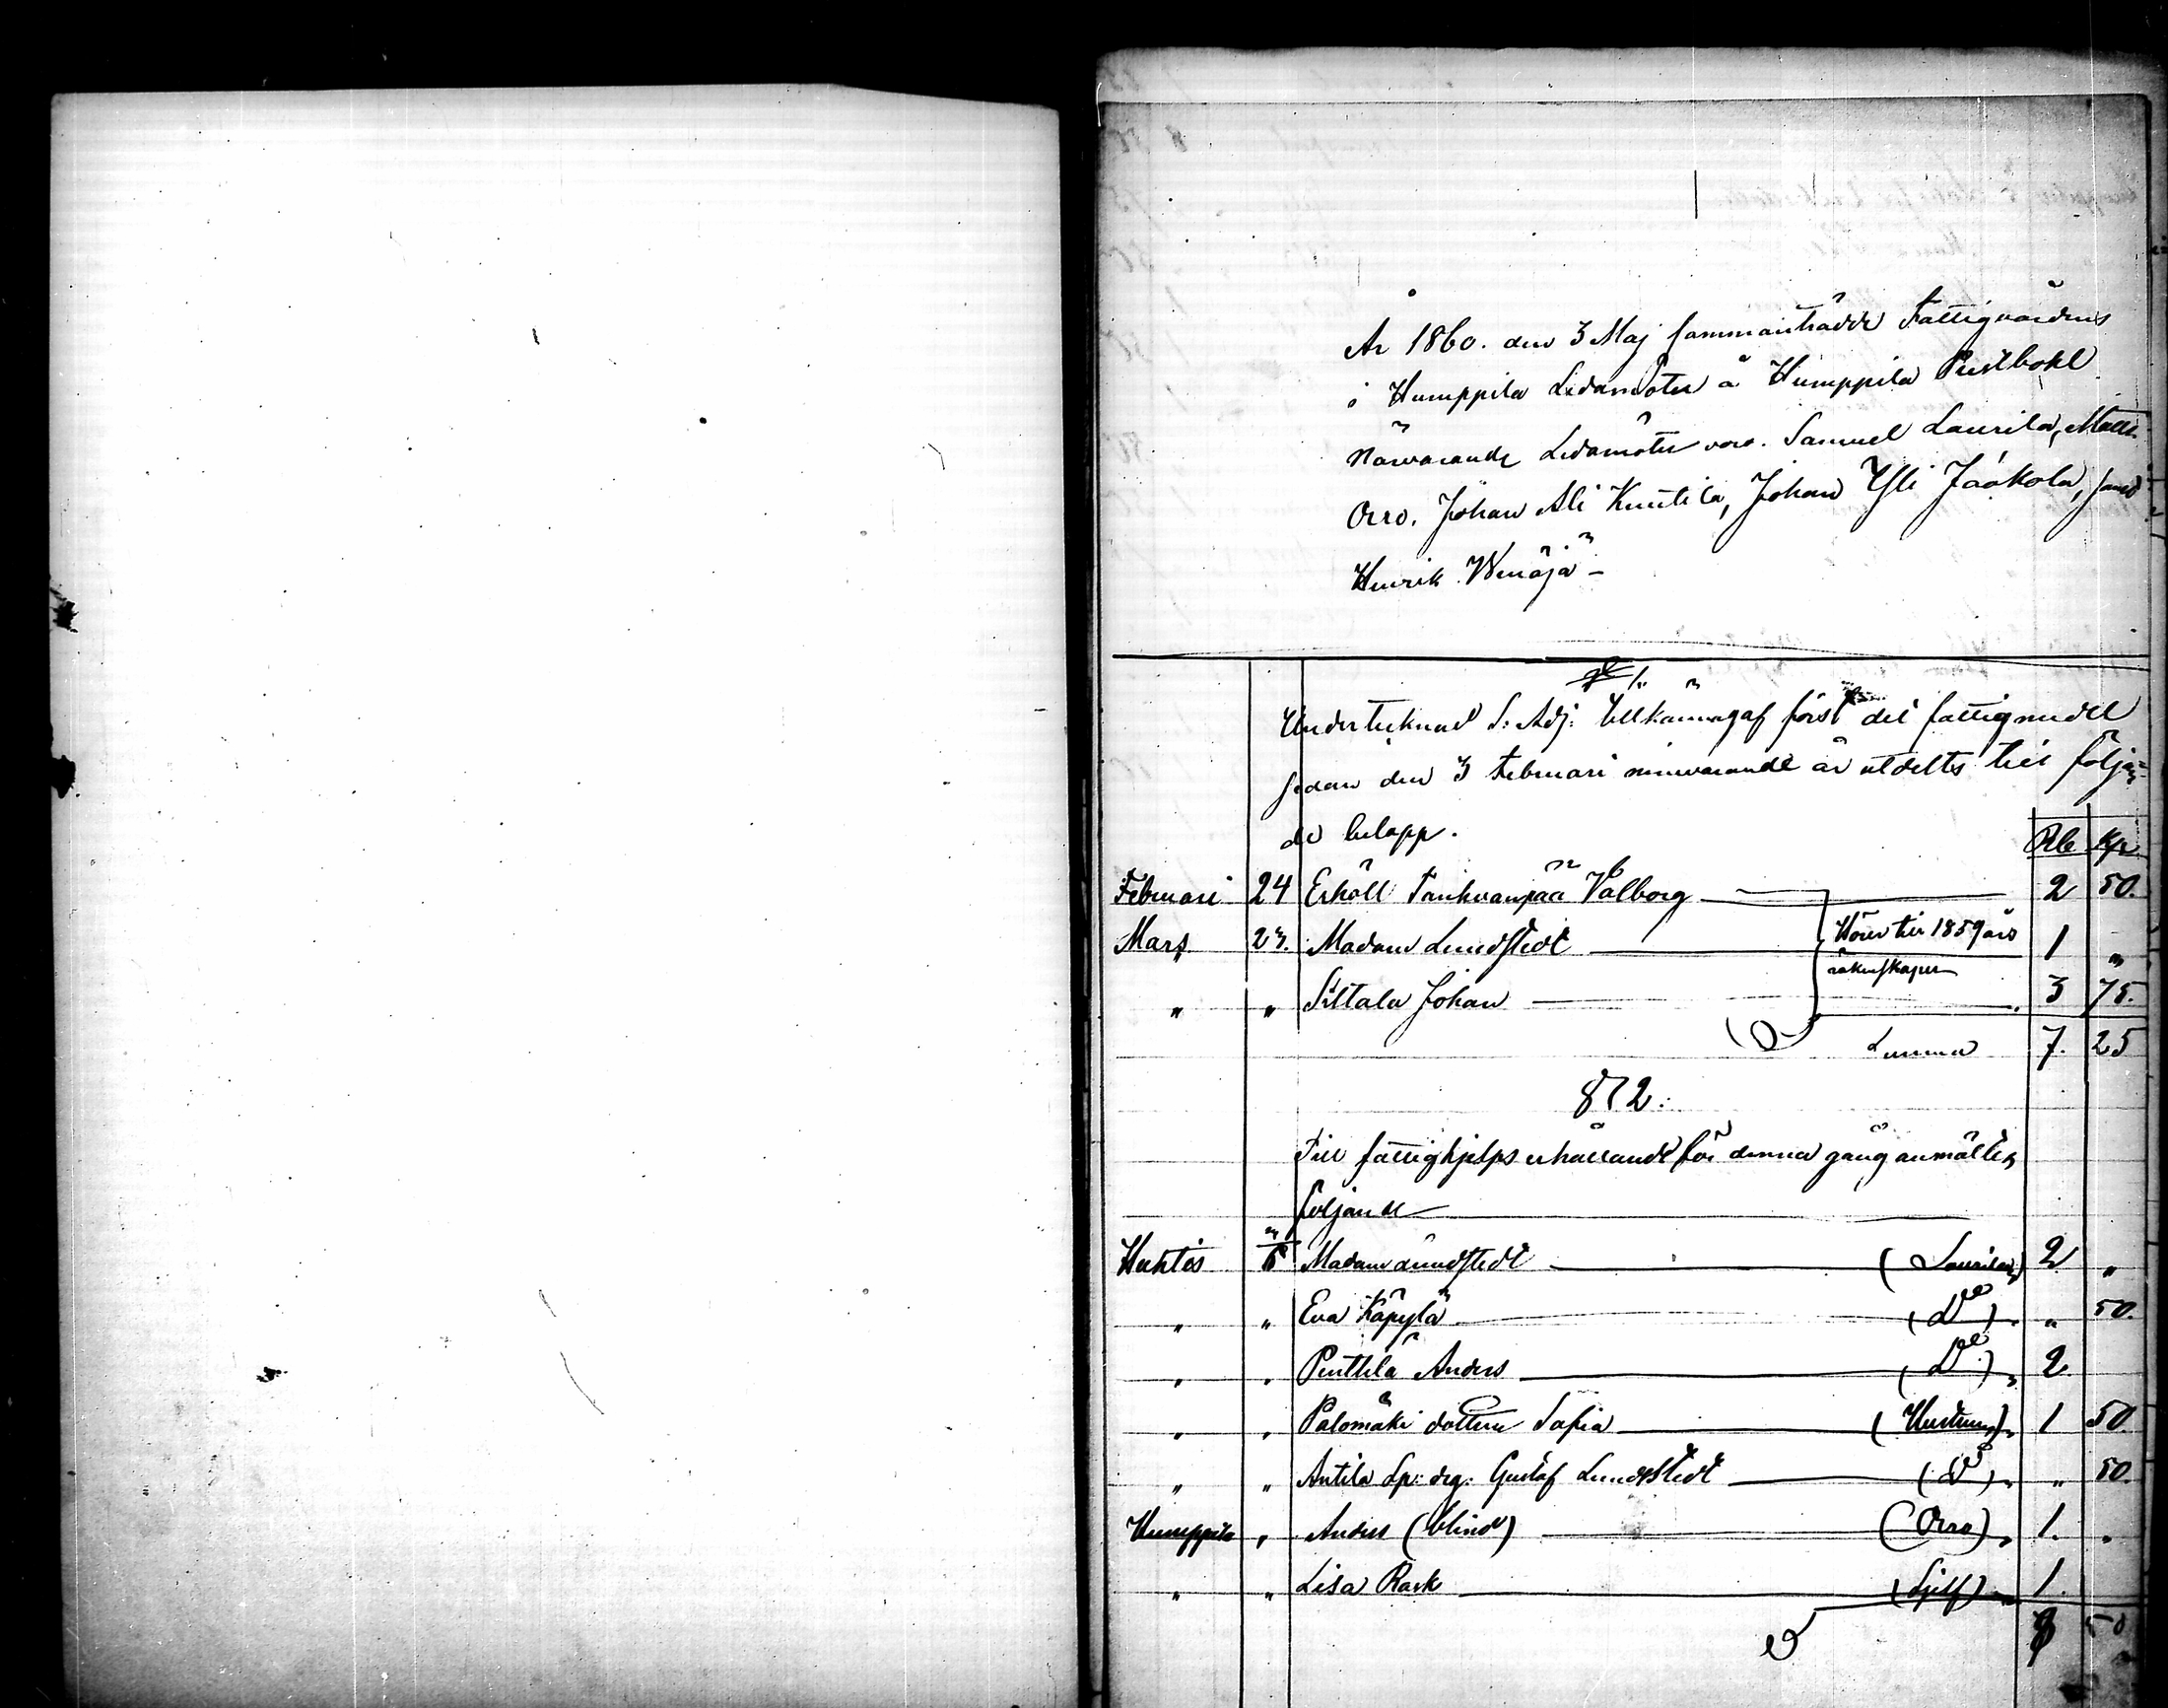 År 1860. den 3 Maj sammanträdde Fattigvårdens
i Humppila Ledamöter å Humppila Prestbohl
Närvarande Ledamöter voro. Samuel Laurila, Matts
Orro. Johan Ali Knutila, Johan Yli Jaakola, samt
Henrik Wenäjä –
§ 1.
Undertecknad S: Adj: tillkännagaf först det fattigmedel
sedan den 3 Februari nuvarande år utdelts till följan=
de belopp.
Rb Kp
Februari 24 Erhöll Tankvanpää Valborg 2 50.
Mars 23. Madam Lundstedt Hörer till 1859 års 1 „
räkenskaper
„ „ Siltala Johan 3 75.
Summa 7. 25
§ 2.
Till fattighjelps erhållande för denna gång anmältes
följande
Huhtis 3/5 Madam Lundstedt (Laurila) 2 „
„ „ Eva Käpylä (Do) „ „ 50.
„ „ Penttilä Anders (Do) „ 2
„ „ Palomäki dottern Sofia (Hustrun) „ 1 50.
„ „ Antila Sp: drg: Gustaf Lundstedt (Do) „ „ 50.
Humppila „ Anders (blind) (Orro) „ 1. „
„ „ Lisa Rask (Sjelf) „ 1.
50